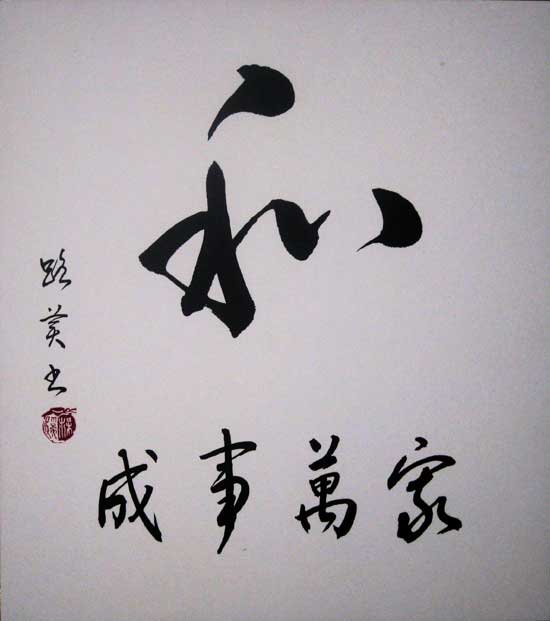 和
家萬事成
路英书